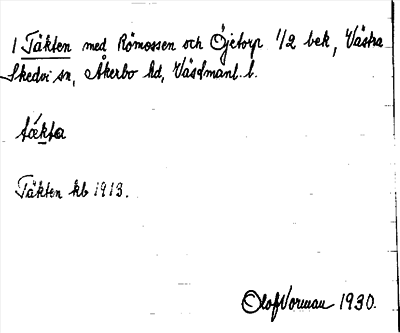 1 Täkten med Römossen och Öjetorp 1/2 bek, Västra
Skedvi sn, Åkerbo hd, Väsdmanl. l.
Täkten kb 1913.
Olof Vorman 1930.